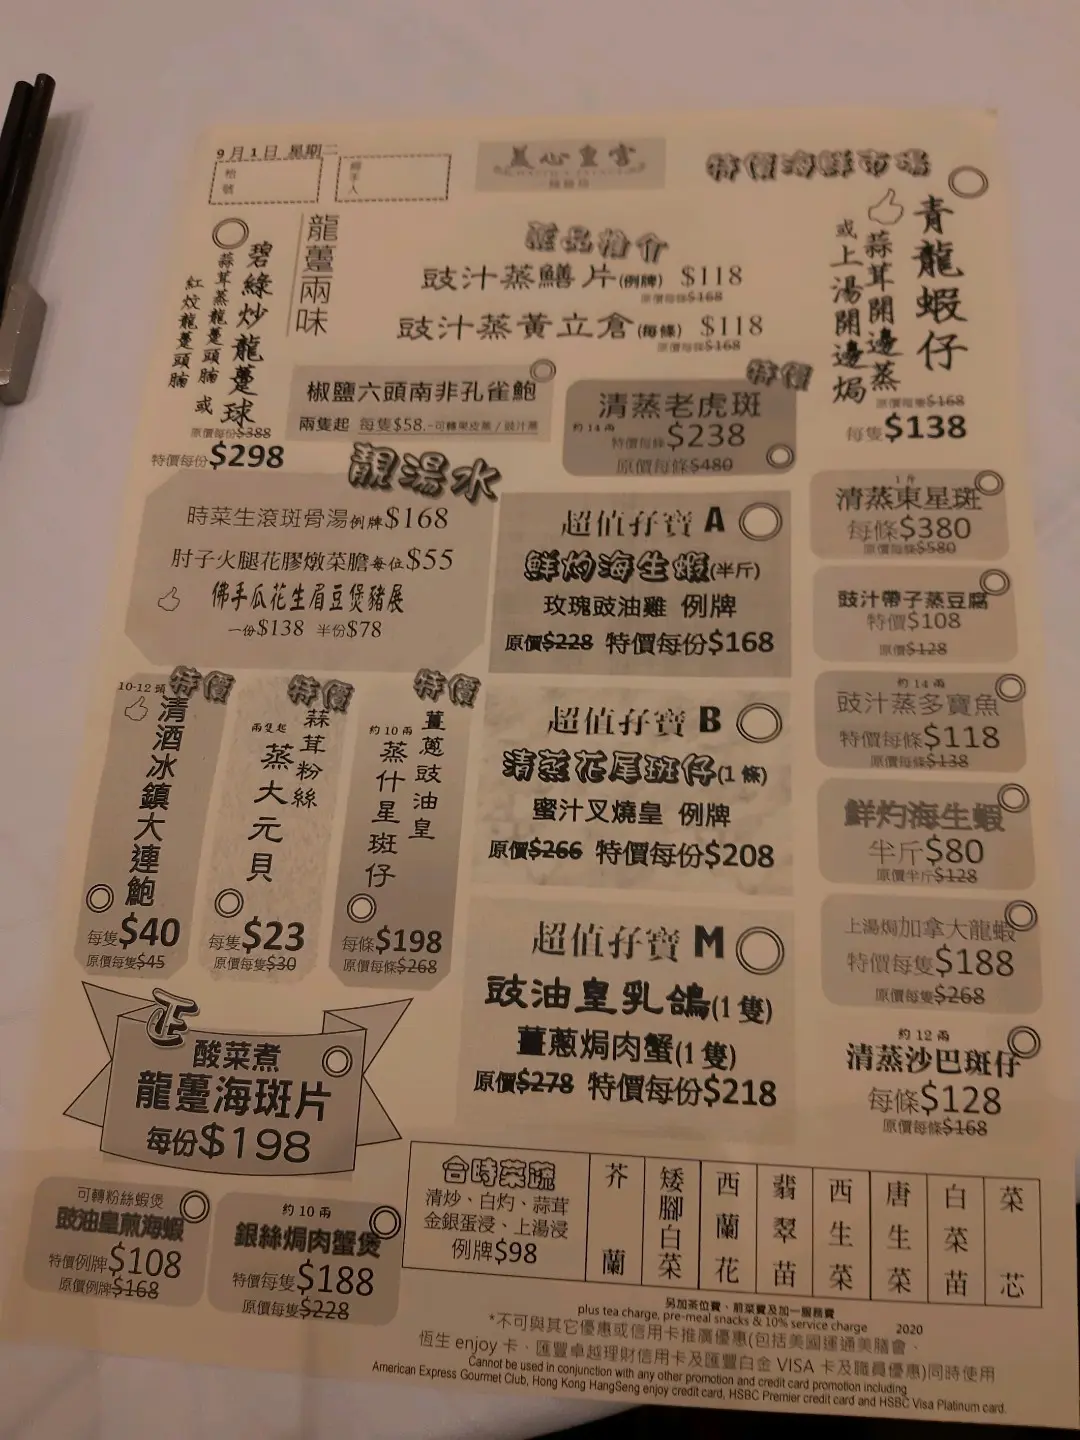 9月1日 星期二
枱號
經手人
美心皇宮
MAXIM'S PALACE
特價海鮮市場
龍躉兩味
碧綠炒龍躉球
蒜茸蒸龍躉頭腩 或
紅炆龍躉頭腩
原價每份$388
特價每份$298
推介
豉汁蒸鱔片(例牌) $118
原價每條$168
豉汁蒸黃立倉(每條) $118
原價每條$168
青龍蝦仔
蒜茸開邊蒸
或上湯開邊焗
原價每隻$168
每隻$138
椒鹽六頭南非孔雀鮑
兩隻起 每隻$58.-可轉果皮蒸/豉汁蒸
特價
清蒸老虎斑
約14兩
特價每條$238
原價每條$480
靚湯水
時菜生滾斑骨湯例牌$168
肘子火腿花膠燉菜膽每位$55
佛手瓜花生眉豆煲豬展
一份$138 半份$78
超值孖寶 A
鮮灼海生蝦(半斤)
玫瑰豉油雞 例牌
原價$228 特價每份$168
1斤
清蒸東星斑
每條$380
原價每條$580
豉汁帶子蒸豆腐
特價$108
原價$128
約14兩
豉汁蒸多寶魚
特價每條$118
原價每條$138
鮮灼海生蝦
半斤$80
原價半斤$128
上湯焗加拿大龍蝦
特價每隻$188
原價每隻$268
約12兩
清蒸沙巴斑仔
每條$128
原價每條$168
特價
10-12頭
清酒冰鎮大連鮑
每隻$40
原價每隻$45
特價
兩隻起
蒜茸粉絲
蒸大元貝
每隻$23
原價每隻$30
特價
約10兩
薑蔥豉油皇
蒸什星斑仔
每條$198
原價每條$268
超值孖寶 B
清蒸花尾斑仔(1條)
蜜汁叉燒皇 例牌
原價$266 特價每份$208
超值孖寶 M
豉油皇乳鴿(1隻)
薑蔥焗肉蟹(1隻)
原價$278 特價每份$218
正
酸菜煮
龍躉海斑片
每份$198
可轉粉絲蝦煲
豉油皇煎海蝦
特價例牌$108
原價例牌$168
約10兩
銀絲焗肉蟹煲
特價每隻$188
原價每隻$228
合時菜蔬
清炒、白灼、蒜茸
金銀蛋浸、上湯浸
例牌$98
芥蘭
矮腳白菜
西蘭花
翡翠苗
西生菜
唐生菜
白菜苗
菜芯
另加茶位費、前菜費及加一服務費
plus tea charge, pre-meal snacks & 10% service charge 2020
*不可與其它優惠或信用卡推廣優惠(包括美國運通美膳會、
恆生 enjoy 卡、匯豐卓越理財信用卡及匯豐白金 VISA 卡及職員優惠)同時使用
Cannot be used in conjunction with any other promotion and credit card promotion including
American Express Gourmet Club, Hong Kong HangSeng enjoy credit card, HSBC Premier credit card and HSBC Visa Platinum card.